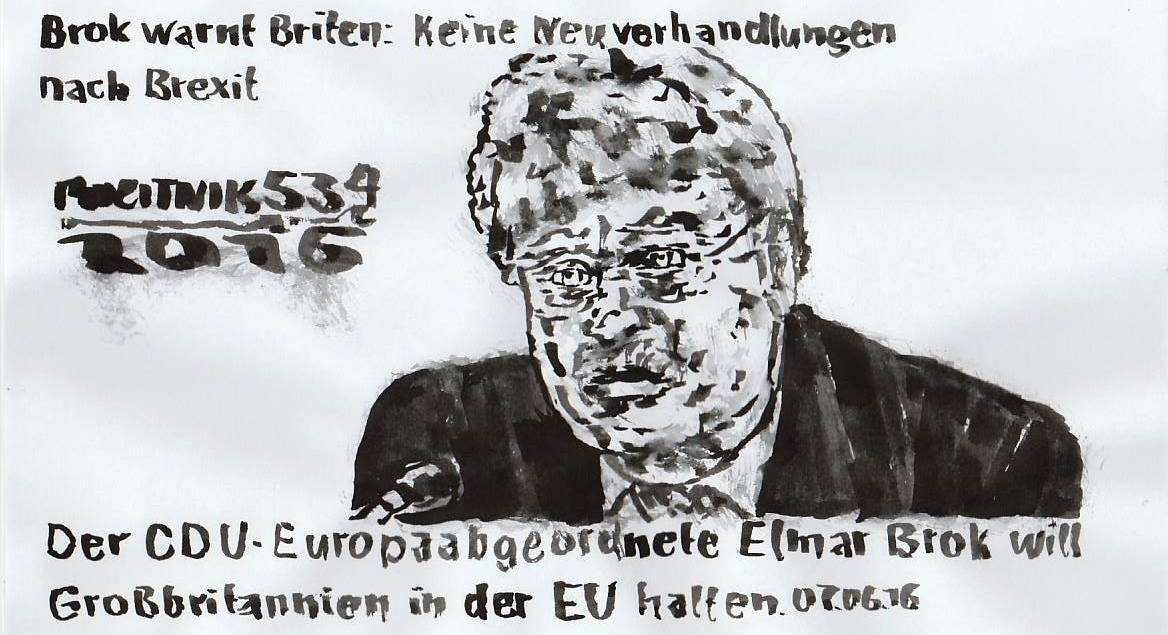 Brok warnt Briten: Keine Neuverhandlungen
nach Brexit
2016
Der CDU-Europaabgeordnete Elmar Brok will
Großbritannien in der EU halten. 07.06.16